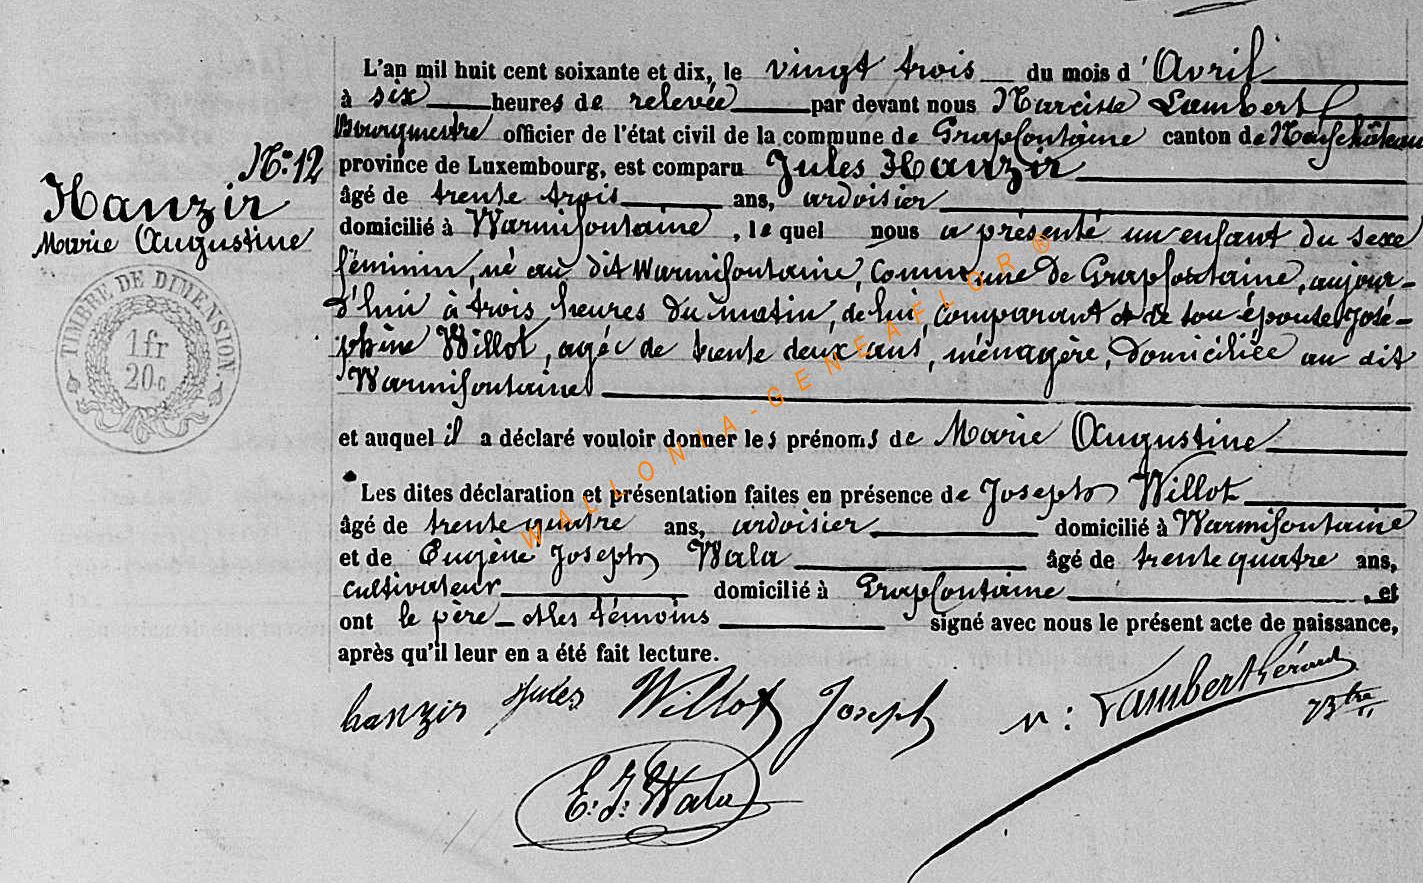 L'an mil huit cent soixante et dix, le vingt trois du mois d'Avril
à six heures de relevée par devant nous Narcisse Lambert
Bourgmestre officier de l'état civil de la commune de Grapfontaine canton de Neufchâteau
province de Luxembourg, est comparu Jules Hanzir
âgé de trente trois ans, ardoisier
domicilié à Warmifontaine, lequel nous a présenté un enfant du sexe
féminin, né au dit Warmifontaine, Commune de Grapfontaine, aujour-
d'hui à trois heures du matin, de lui, Comparant et de son épouse José-
phine Willot, agée de trente deux ans, ménagère, domiciliée au dit
Warmifontaine
et auquel il a déclaré vouloir donner les prénoms de Marie Augustine
Les dites déclaration et présentation faites en présence de Joseph Willot
âgé de trente quatre ans, ardoisier domicilié à Warmifontaine
et de Eugène Joseph Wala âgé de trente quatre ans,
cultivateur domicilié à Grapfontaine, et
ont le père et les témoins signé avec nous le présent acte de naissance,
après qu'il leur en a été fait lecture.
N° 12
Hanzir
Marie Augustine
TIMBRE DE DIMENSION
1fr
20c
hanzir Jules Willot Joseph N: Lambert Gérard
Btre
E. J. Wala
WALLONIA-GENEAFLOR®